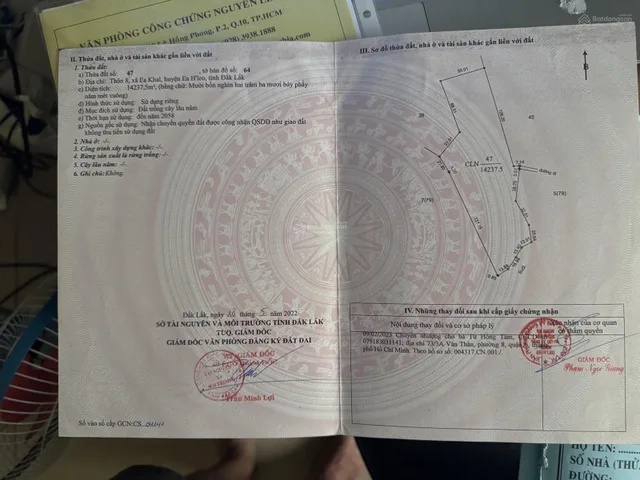 VĂN PHÒNG CÔNG CHỨNG NGUYỄN
Hồng Phong, P.2, Q.10, TP.HCM
3938.1888
Batdongsan
II. Thửa đất, nhà ở và tài sản khác gắn liền với đất
1. Thửa đất:
a) Thửa đất số: 47 , tờ bản đồ số: 64
b) Địa chỉ: Thôn 8, xã Ea Khal, huyện Ea H'leo, tỉnh Đắk Lắk
c) Diện tích: 14237,5m², (bằng chữ: Mười bốn nghìn hai trăm ba mươi bảy phẩy
năm mét vuông)
d) Hình thức sử dụng: Sử dụng riêng
đ) Mục đích sử dụng: Đất trồng cây lâu năm
e) Thời hạn sử dụng: đến năm 2058
g) Nguồn gốc sử dụng: Nhận chuyển quyền đất được công nhận QSDĐ như giao đất
không thu tiền sử dụng đất
2. Nhà ở: -/-
3. Công trình xây dựng khác: -/-
4. Rừng sản xuất là rừng trồng: -/-
5. Cây lâu năm: -/-
6. Ghi chú: Không.
Đắk Lắk, ngày tháng năm 2022
SỞ TÀI NGUYÊN VÀ MÔI TRƯỜNG TỈNH ĐẮK LẮK
TUQ. GIÁM ĐỐC
GIÁM ĐỐC VĂN PHÒNG ĐĂNG KÝ ĐẤT ĐAI
GIÁM ĐỐC
Trần Minh Lợi
Số vào sổ cấp GCN: CS
III. Sơ đồ thửa đất, nhà ở và tài sản khác gắn liền với đất
B
CLN 47
14237.5
đường đi
5(79)
7(79)
IV. Những thay đổi sau khi cấp giấy chứng nhận
Nội dung thay đổi và cơ sở pháp lý
Xác nhận của cơ quan
có thẩm quyền
09/02/2023 Chuyển nhượng cho bà Từ Hồng Tâm,
079183031141; địa chỉ 73/3A Văn Thân, phường 8, quận
phố Hồ Chí Minh. Theo hồ sơ số: 004317.CN.001./.
GIÁM ĐỐC
Phạm Ngọc
HỌ TÊN:
SỐ NHÀ (THỬA
ĐƯỜNG: